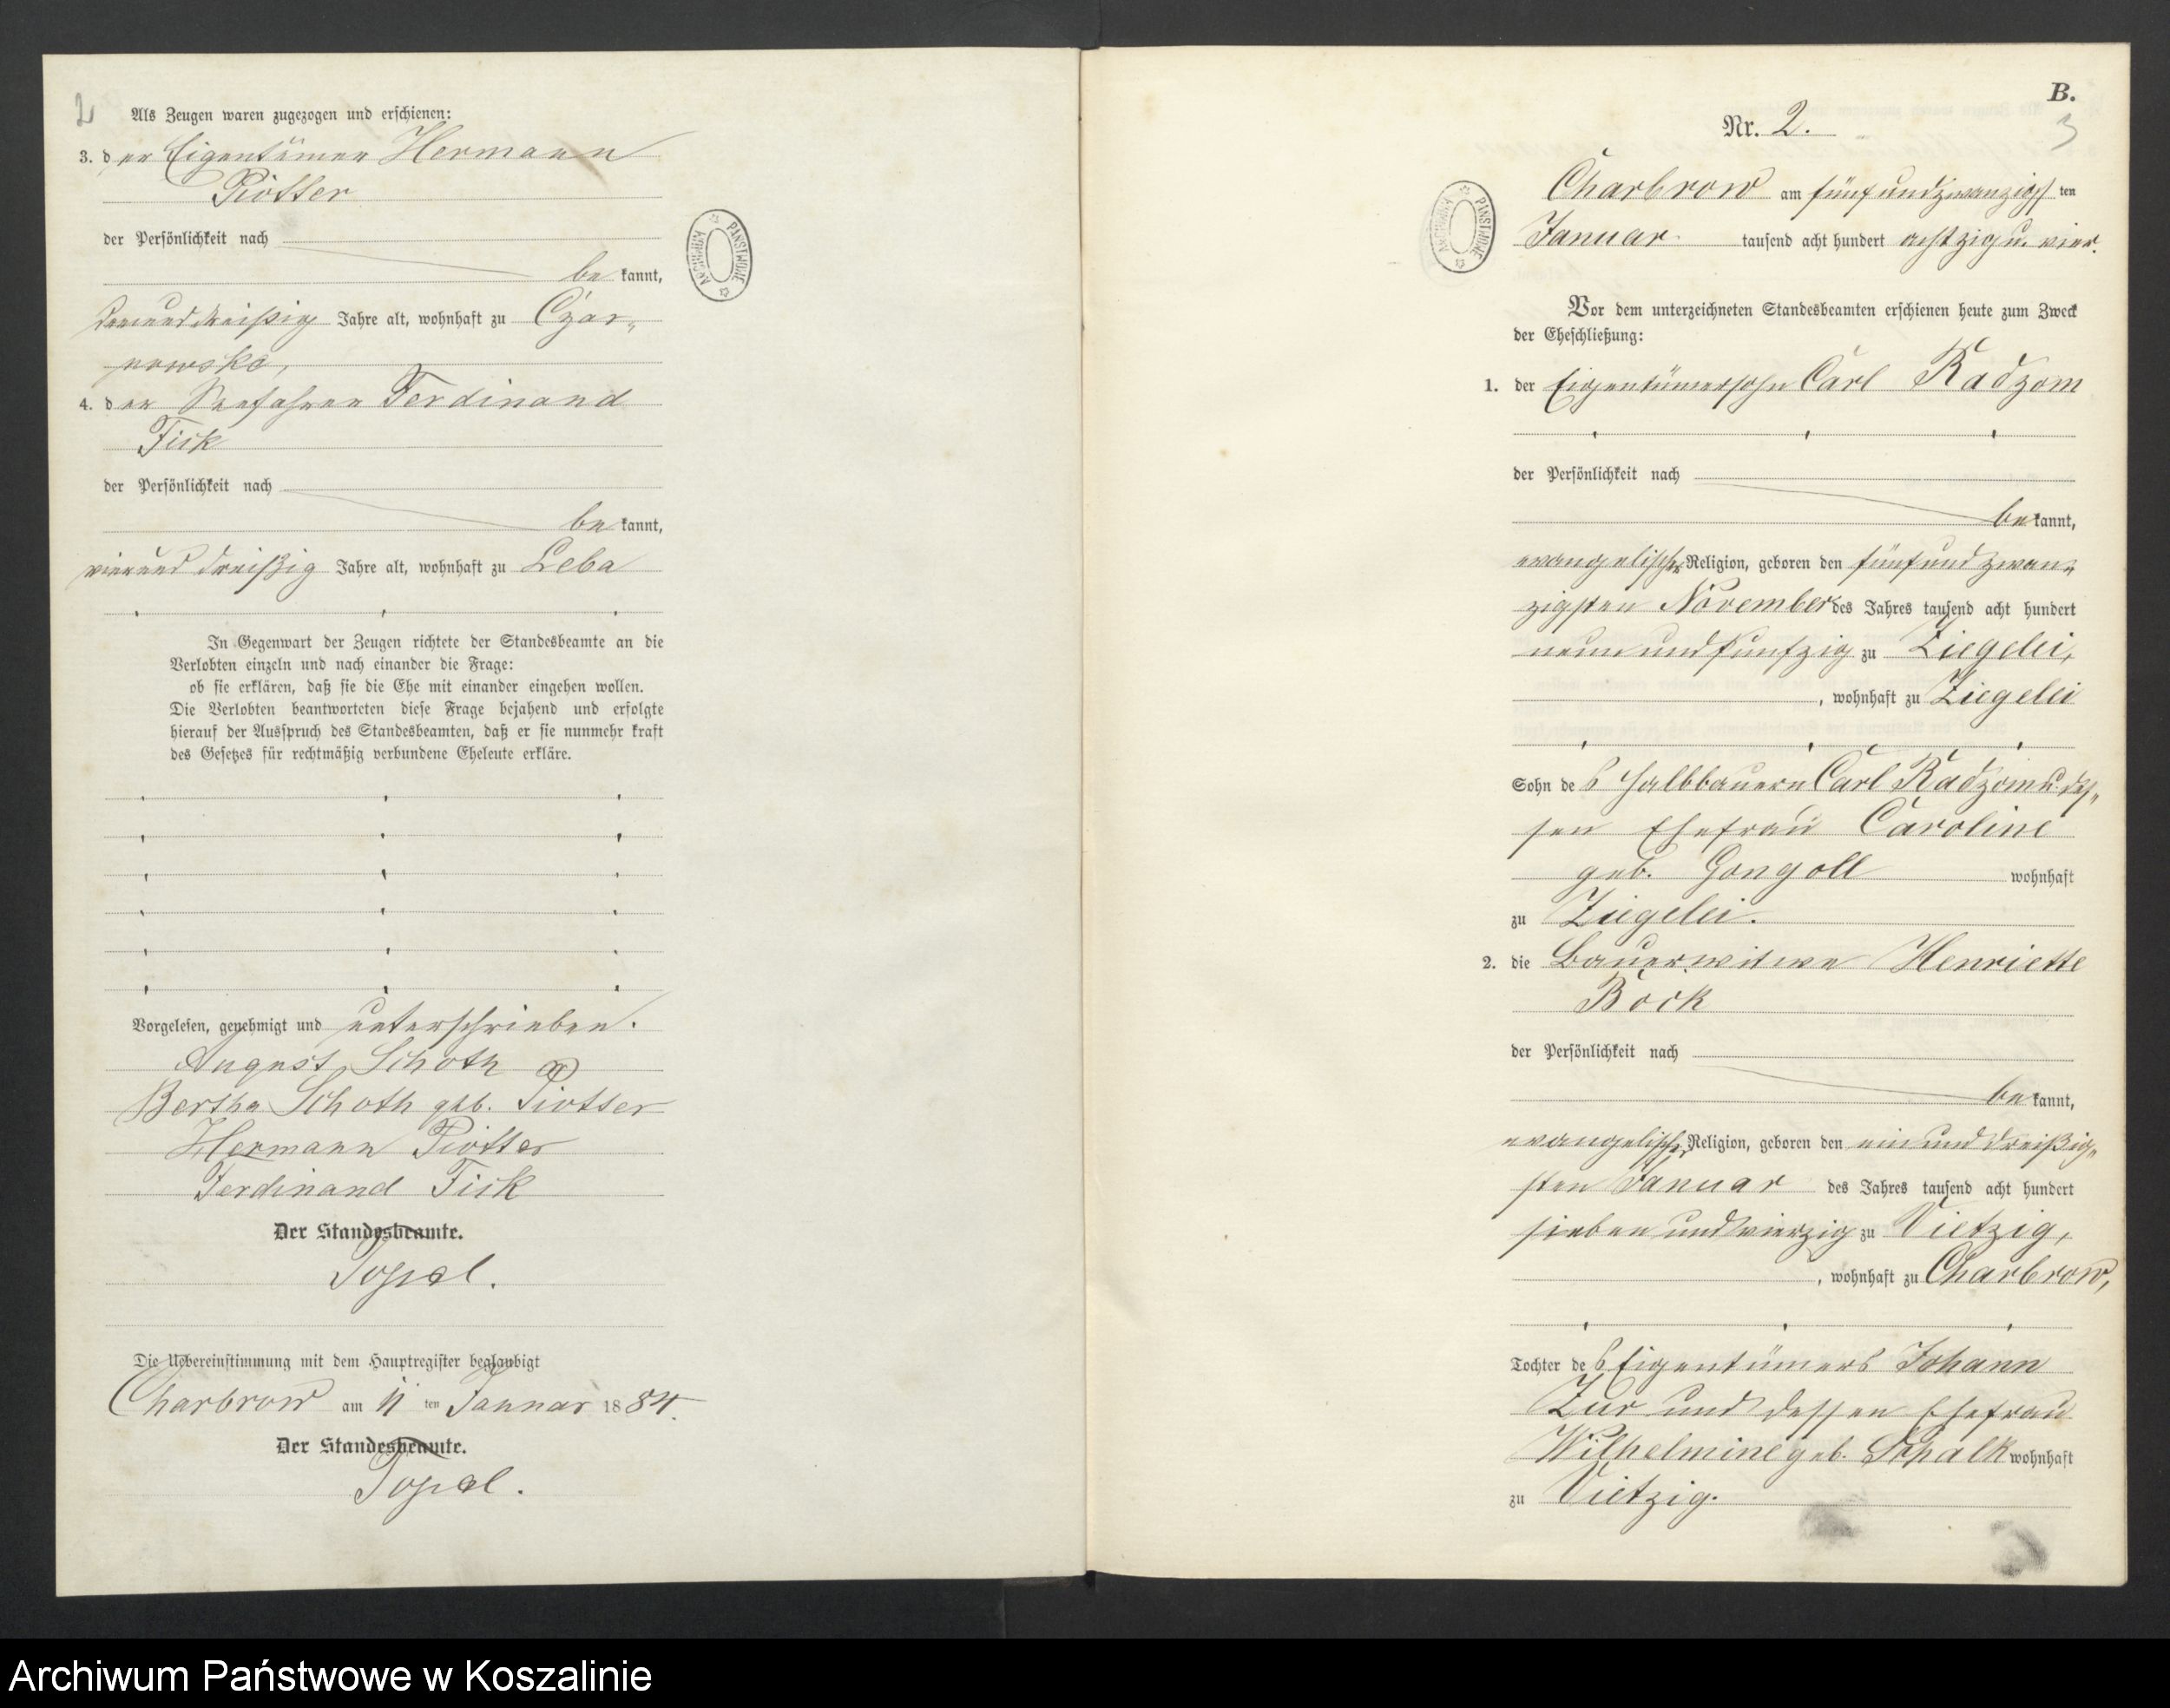 2
Als Zeugen waren zugezogen und erschienen:
3. der Eigentümer Hermann
Piotter
der Persönlichkeit nach
be kannt,
dreiunddreißig Jahre alt, wohnhaft zu Czar-
nowske,
4. der Seefahrer Ferdinand
Fick
der Persönlichkeit nach
be kannt,
vierunddreißig Jahre alt, wohnhaft zu Leba
In Gegenwart der Zeugen richtete der Standesbeamte an die
Verlobten einzeln und nach einander die Frage:
ob sie erklären, daß sie die Ehe mit einander eingehen wollen.
Die Verlobten beantworteten diese Frage bejahend und erfolgte
hierauf der Ausspruch des Standesbeamten, daß er sie nunmehr kraft
des Gesetzes für rechtmäßig verbundene Eheleute erkläre.
Vorgelesen, genehmigt und unterschrieben.
August Schoth
Bertha Schoth geb. Piotter
Hermann Piotter
Ferdinand Fick
Der Standesbeamte.
Die Uebereinstimmung mit dem Hauptregister beglaubigt
Charbrow am 11 ten Januar 1884.
Der Standesbeamte.
ARCHIWUM PAŃSTWOWE
B.
3
Nr. 2.
Charbrow am fünfundzwanzigsten
Januar tausend acht hundert achtzig u. vier.
ARCHIWUM PAŃSTWOWE
Vor dem unterzeichneten Standesbeamten erschienen heute zum Zweck
der Eheschließung:
1. der Eigentümersohn Carl Radzom
der Persönlichkeit nach
be kannt,
evangelischer Religion, geboren den fünfundzwan-
zigsten November des Jahres tausend acht hundert
neunundfünfzig zu Ziegelei,
, wohnhaft zu Ziegelei
Sohn des Halbbauern Carl Radzom u. des-
sen Ehefrau Caroline
geb. Gongoll wohnhaft
zu Ziegelei.
2. die Bauerwitwe Henriette
Bock
der Persönlichkeit nach
be kannt,
evangelischer Religion, geboren den einunddreißig-
sten Januar des Jahres tausend acht hundert
siebenundvierzig zu Vietzig,
, wohnhaft zu Charbrow,
Tochter des Eigentümers Johann
Zur und dessen Ehefrau
Wilhelmine geb. Schalk wohnhaft
zu Vietzig.
Archiwum Państwowe w Koszalinie